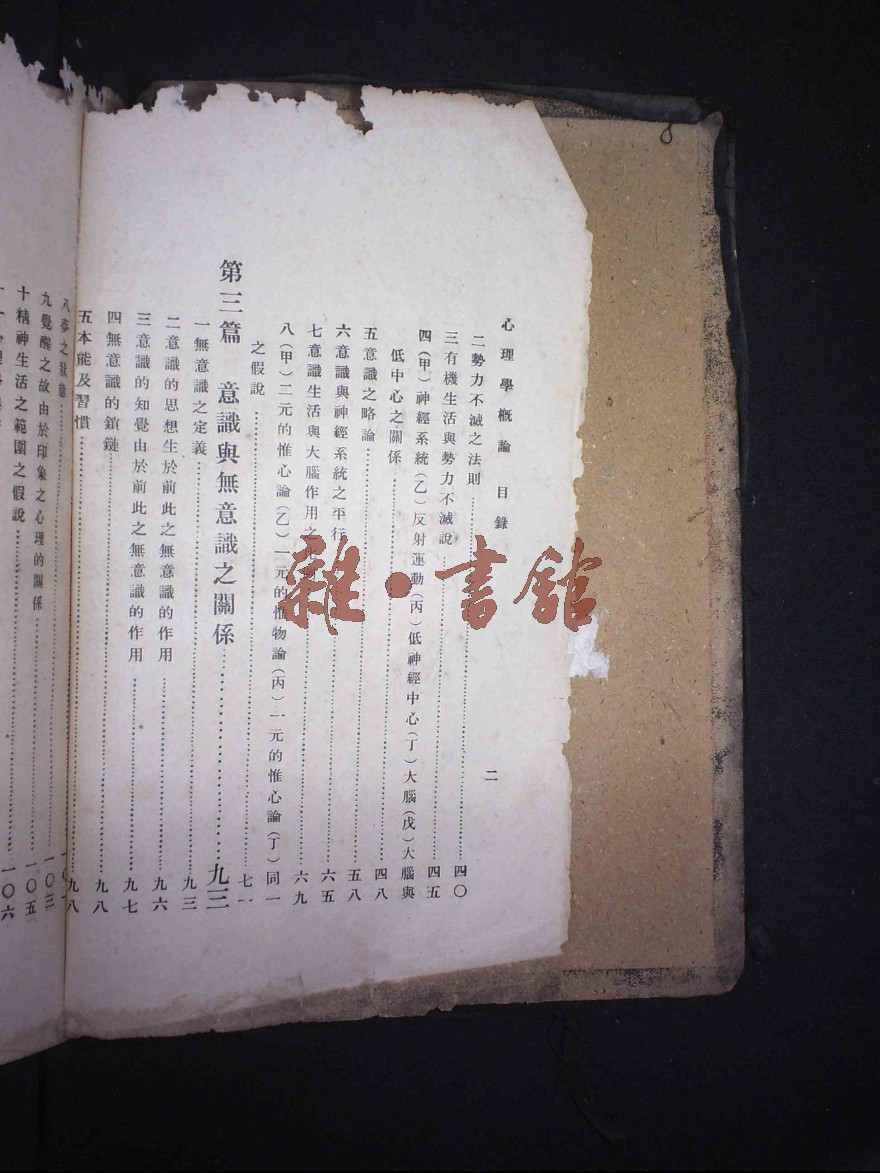 心理學概論 目錄 二
二勢力不滅之法則……四〇
三有機生活與勢力不滅說……四五
四(甲)神經系統(乙)反射運動(丙)低神經中心(丁)大腦(戊)大腦與
低中心之關係……四八
五意識之略論……五八
六意識與神經系統之平行……六五
七意識生活與大腦作用之……六九
八(甲)二元的惟心論(乙)一元的惟物論(丙)一元的惟心論(丁)同一
之假說……七一
第三篇 意識與無意識之關係……九三
一無意識之定義……九三
二意識的思想生於前此之無意識的作用……九六
三意識的知覺由於前此之無意識的作用……九七
四無意識的鎖鏈……九八
五本能及習慣……九八
八夢之狀態……一〇三
九覺醒之故由於印象之心理的關係……一〇五
十精神生活之範圍之假說……一〇六
雜·書館